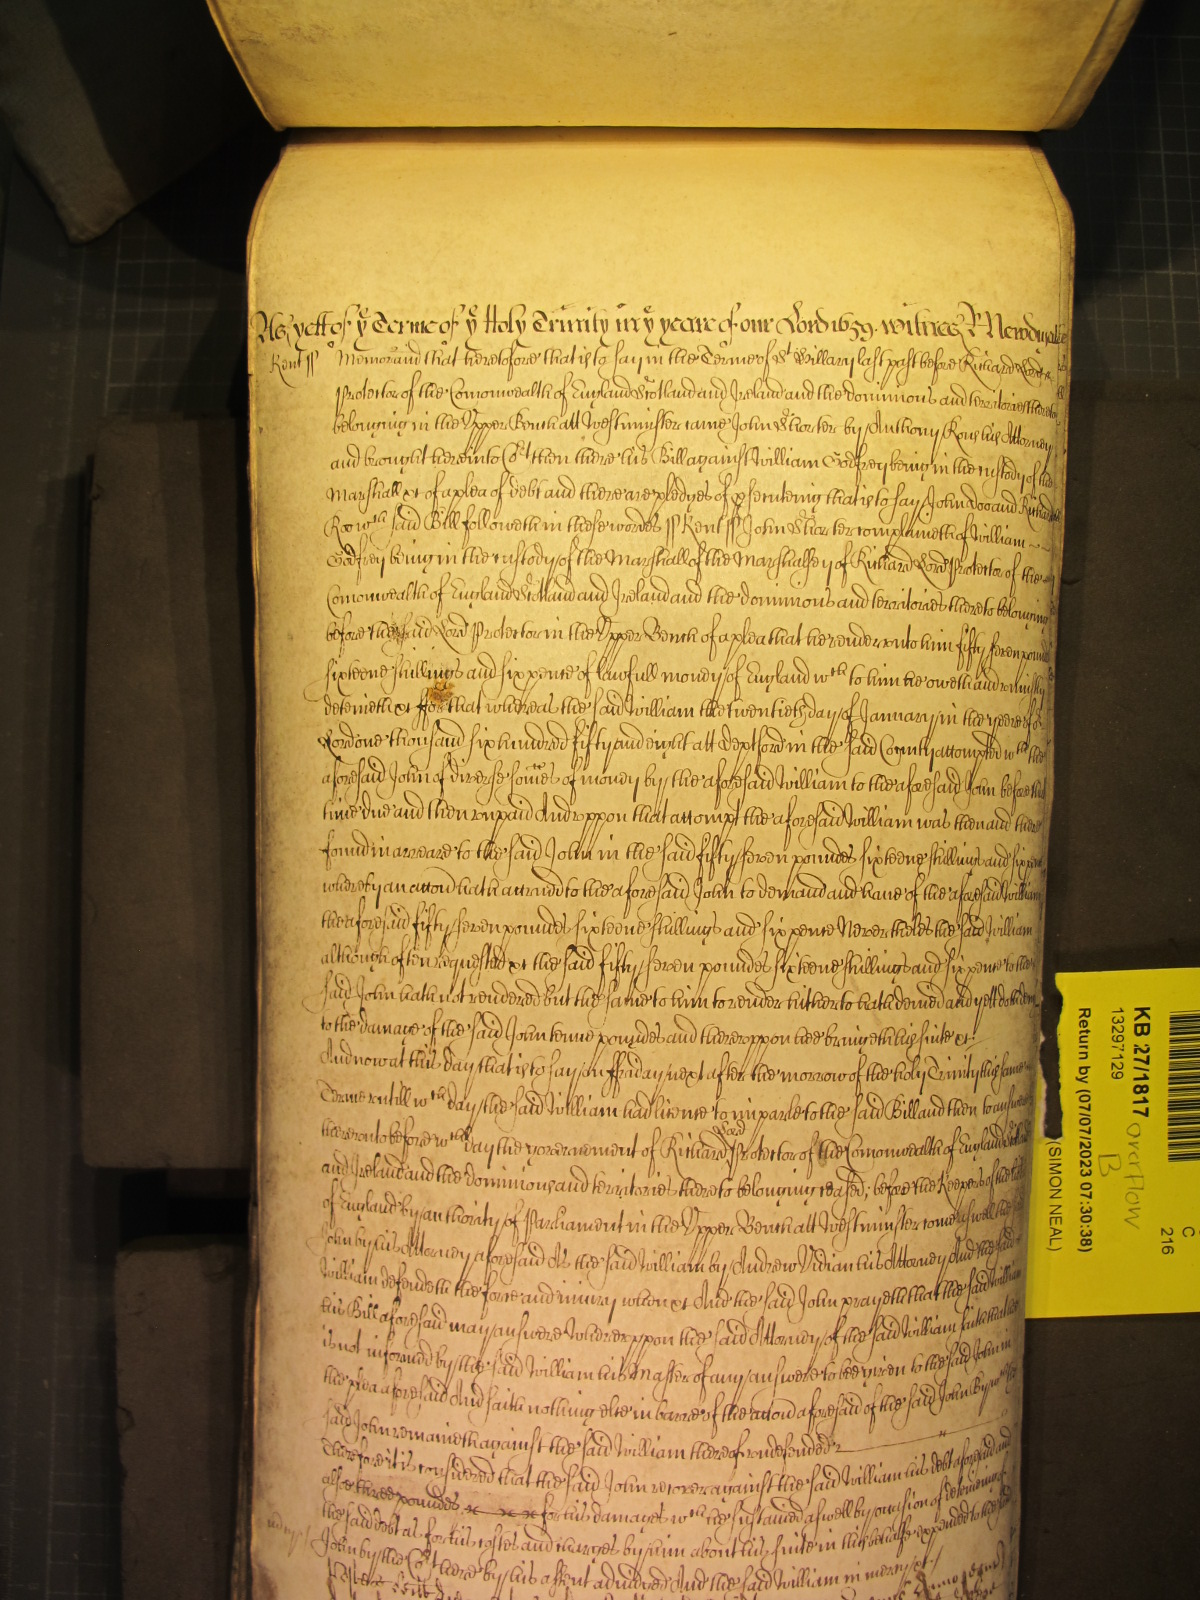 As yett of ye Terme of ye Holy Trinity in ye yeare of our Lord 1659. witnes R Newdigate
Kent ss Memorand that heretofore that is to say in the Terme of St Hillary last past before Richard Lord
Protector of the Comonwealth of England Scotland and Ireland and the dominions and territories thereto
belonging in the Upper Bench att Westminster came John Shorter by Anthony Rous his Attorney
and brought here into Cort then there his Bill against William Godfrey being in the custody of the
Marshall &c of a plea of debt and there are pledges of psecuteing that is to say John Doo and Richard
Roo wch said Bill followeth in these wordes ss Kent ss John Shorter complaineth of William
Godfrey being in the custody of the Marshall of the Marshalsey of Richard Lord Protector of the
Comonwealth of England Scotland and Ireland and the dominions and territories thereto belonging
before the said Lord Protector in the Upper Bench of a plea that he render unto him fifty seven pounds
sixteene shillings and six pence of lawfull money of England wch to him he oweth and uniustly
deteineth &c ffor that whereas the said William the twentieth day of January in the yeere of
Lord one thousand six hundred fifty and eight att Deptford in the said County accompted wth the
aforesaid John of diverse somes of money by the aforesaid William to the aforesaid John before that
time due and then unpaid And uppon that accompt the aforesaid William was then and there
found in arreare to the said John in the said fifty seven poundes sixteene shillings and six pence
whereby an accon hath accrued to the aforesaid John to demand and have of the aforesaid William
the aforesaid fifty seven poundes sixteene shillings and six pence Neverthelesse the said William
although often requested &c the said fifty seven poundes sixteene shillings and six pence to the
said John hath not rendered but the same to him to render hitherto hath denied and yett doth deny
to the damage of the said John tenne poundes and thereuppon hee bringeth his suite &c
And now at this day that is to say on ffriday next after the morrow of the holy Trinity this same
Terme untill wch day the said William had licence to imparle to the said Bill and then to answere
thereunto before wch day the government of Richard Lord Protector of the Comonwealth of England Scotland
and Ireland and the dominions and territories thereto belonging ceased; before the Keepers of the
of England by authority of Parliament in the Upper Bench att Westminster come aswell the
John by his Attorney aforesaid As the said William by Andrew Vidian his Attorney And the said
William defendeth the force and iniury when &c And the said John prayeth that the said William
his Bill aforesaid may answere Whereuppon the said Attorney of the said William saith that hee
is not informed by the said William his Master of any answere to bee given to the said John in
the plea aforesaid And saith nothing else in barre of the accon aforesaid of the said John By wch the
said John remaineth against the said William thereof undefended
Therefore it is considered that the said John recover against the said William his debt aforesaid and
alsoe three poundes for his damages wch he sustained aswell by occasion of deteineing of
the said debt as for his costes and charges by him about his suite in this behalfe expended to the said
John by the Cort here by his assent adiudged And the said William in mercy &c
KB 27/1817 overflow
B
13297129
C
216
Return by (07/07/2023 07:30:38)
(SIMON NEAL)